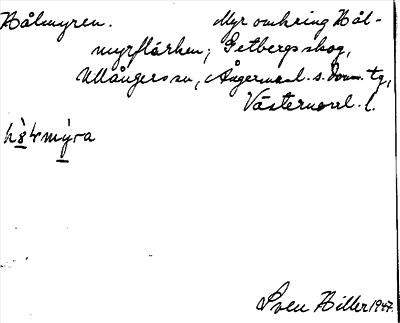 Hålmyren. Myr omkring Hål-
myrflärken; Getbergs skog,
Ullångers sn, Ångermanl. s. Dom. tg,
Västernorrl. l.
Sven Hiller 1947.